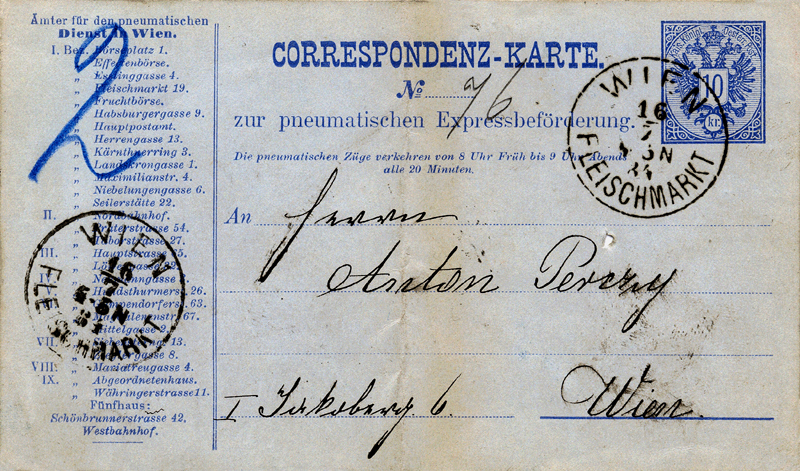 Ämter für den pneumatischen
Dienst in Wien.
I. Bez. Börseplatz 1.
„ Effectenbörse.
„ Esslinggasse 4.
„ Fleischmarkt 19.
„ Fruchtbörse.
„ Habsburgergasse 9.
„ Hauptpostamt.
„ Herrengasse 13.
„ Kärnthnerring 3.
„ Landskrongasse 1.
„ Maximilianstr. 4.
„ Niebelungengasse 6.
„ Seilerstätte 22.
II. Nordbahnhof.
„ Praterstrasse 54.
„ Taborstrasse 27.
III. Hauptstrasse 65.
Hundsthurmerstr. 26.
Gumpendorferst. 63.
Magdalenenstr. 67.
Mittelgasse 2.
VII. Siebensterng. 13.
„ Zieglergasse 8.
VIII. Mariatreugasse 4.
IX. Abgeordnetenhaus.
„ Währingerstrasse 11.
Fünfhaus:
Schönbrunnerstrasse 42.
Westbahnhof.
2
CORRESPONDENZ-KARTE.
No 76
zur pneumatischen Expressbeförderung.
Die pneumatischen Züge verkehren von 8 Uhr Früh bis 9 Uhr Abends
alle 20 Minuten.
An Herrn
Anton Perczy
I Jakoberg 6. Wien
10
kr.
WIEN
16
7
84
FLEISCHMARKT
WIEN
FLEISCHMARKT